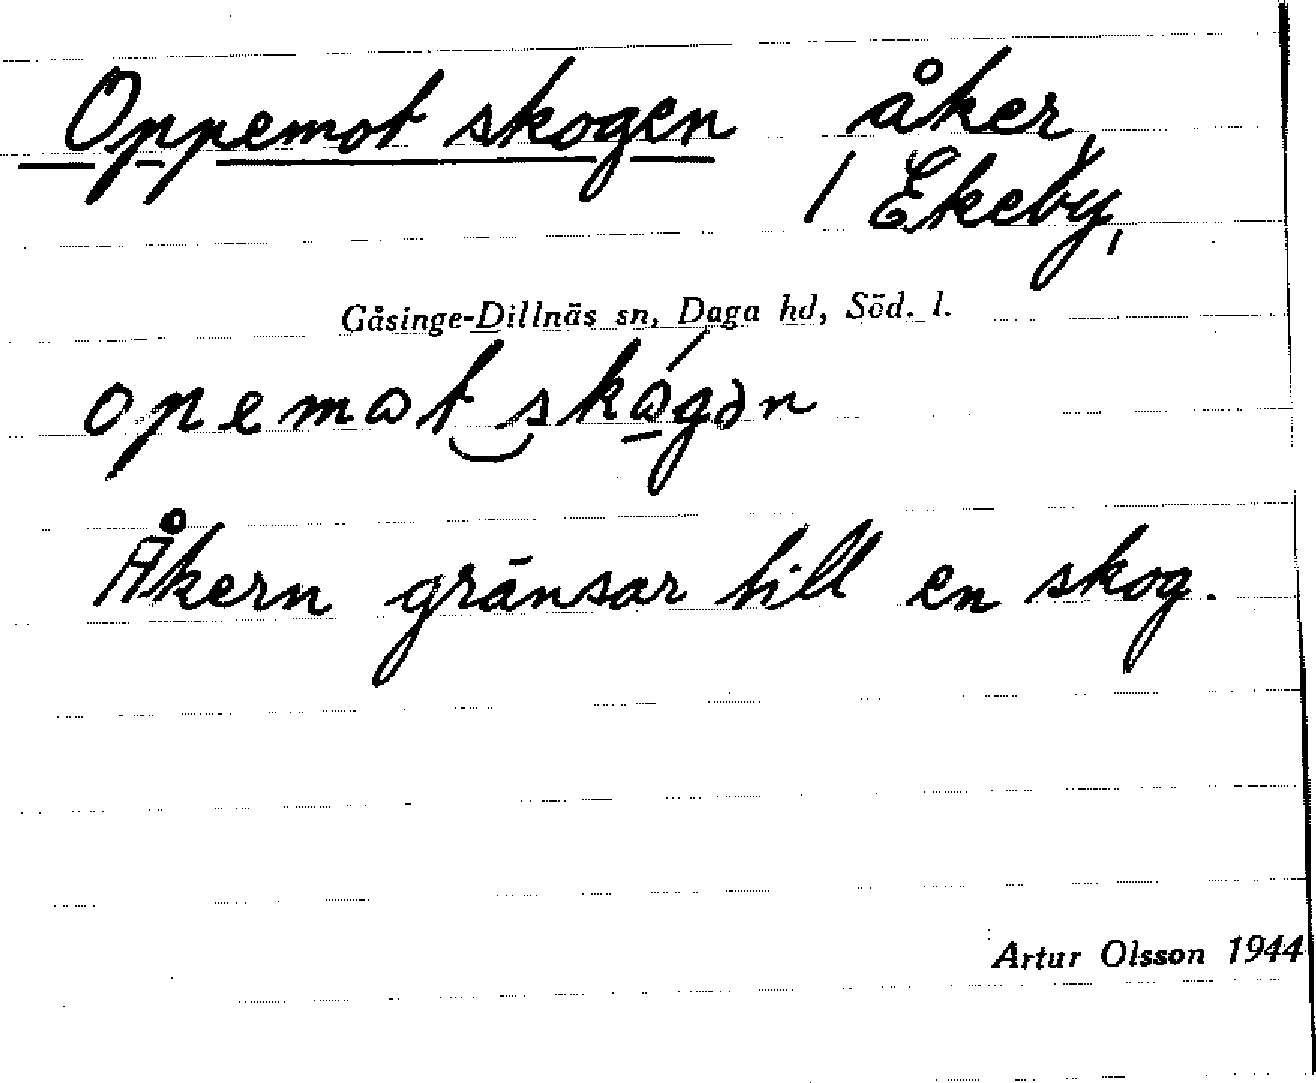 Oppemot skogen åker,
/ Ekeby,
Gåsinge-Dillnäs sn, Daga hd, Söd. l.
opemɷt skɷ́gən
Åkern gränsar till en skog.
Artur Olsson 1944